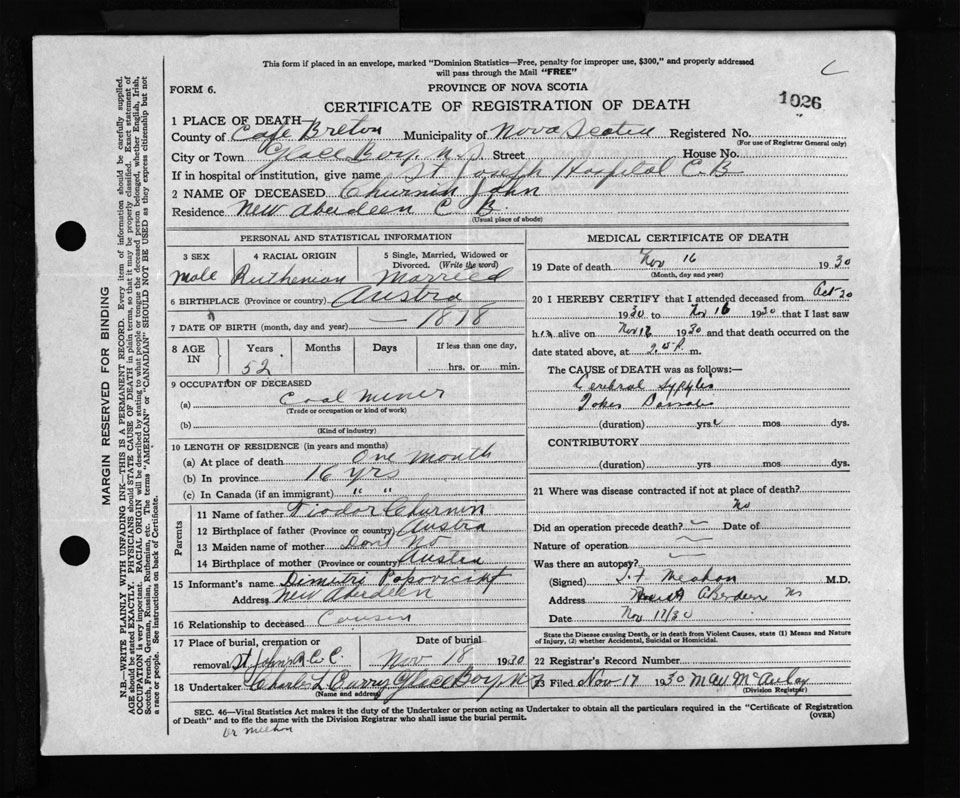 This form if placed in an envelope, marked "Dominion Statistics—Free, penalty for improper use, $300," and properly addressed
will pass through the Mail "FREE"
FORM 6.
PROVINCE OF NOVA SCOTIA
CERTIFICATE OF REGISTRATION OF DEATH
1026
1 PLACE OF DEATH—
County of Cape Breton Municipality of Nova Scotia Registered No.
(For use of Registrar General only)
City or Town Glace Bay. N.S. Street House No.
If in hospital or institution, give name St Joseph Hospital C.B
2 NAME OF DECEASED Churnin John
Residence New Aberdeen C B.
(Usual place of abode)
PERSONAL AND STATISTICAL INFORMATION
3 SEX 4 RACIAL ORIGIN 5 Single, Married, Widowed or
Divorced. (Write the word)
Male Ruthenian Married
6 BIRTHPLACE (Province or country) Austra
7 DATE OF BIRTH (month, day and year) — 1878
8 AGE IN Years Months Days If less than one day,
52 hrs. or min.
9 OCCUPATION OF DECEASED
(a) Coal Miner
(Trade or occupation or kind of work)
(b)
(Kind of industry)
10 LENGTH OF RESIDENCE (in years and months)
(a) At place of death One Month
(b) In province 16 yrs
(c) In Canada (if an immigrant) " "
Parents
11 Name of father Fiodor Churnin
12 Birthplace of father (Province or country) Austra
13 Maiden name of mother Dont No
14 Birthplace of mother (Province or country) Austra
15 Informant's name Dimitri
Address New Aberdeen
16 Relationship to deceased Cousin
17 Place of burial, cremation or Date of burial
removal St John Nov 18 1930
18 Undertaker Charles L Curry Glace Bay N.S
(Name and address)
MEDICAL CERTIFICATE OF DEATH
19 Date of death Nov 16 1930
(Month, day and year)
20 I HEREBY CERTIFY that I attended deceased from Oct 20
1930 to Nov 16 1930 that I last saw
him alive on Nov 16 1930 and that death occurred on the
date stated above, at m.
The CAUSE of DEATH was as follows:—
Cerebral Syphles
Tabes
(duration) yrs. mos dys.
CONTRIBUTORY
(duration) yrs. mos. dys.
21 Where was disease contracted if not at place of death?
No
Did an operation precede death? Date of
Nature of operation
Was there an autopsy?
(Signed) Meahan M.D.
Address Aberdeen NS
Date Nov 17/30
State the Disease causing Death, or in death from Violent Causes, state (1) Means and Nature
of Injury, (2) whether Accidental, Suicidal or Homicidal.
22 Registrar's Record Number
23 Filed Nov 17 1930 McAulay
(Division Registrar)
SEC. 46—Vital Statistics Act makes it the duty of the Undertaker or person acting as Undertaker to obtain all the particulars required in the "Certificate of Registration
of Death" and to file the same with the Division Registrar who shall issue the burial permit.
(OVER)
Dr Meehan
MARGIN RESERVED FOR BINDING
N.B.—WRITE PLAINLY WITH UNFADING INK—THIS IS A PERMANENT RECORD. Every item of information should be carefully supplied.
AGE should be stated EXACTLY. PHYSICIANS should STATE CAUSE OF DEATH in plain terms, so that it may be properly classified. Exact statement of
OCCUPATION is very important. RACIAL ORIGIN will be described by stating to what people or tongue the deceased person belonged, whether English, Irish,
Scotch, French, German, Russian, Ruthenian, etc. The terms "AMERICAN" or "CANADIAN" SHOULD NOT BE USED as they express citizenship but not
a race or people. See instructions on back of Certificate.